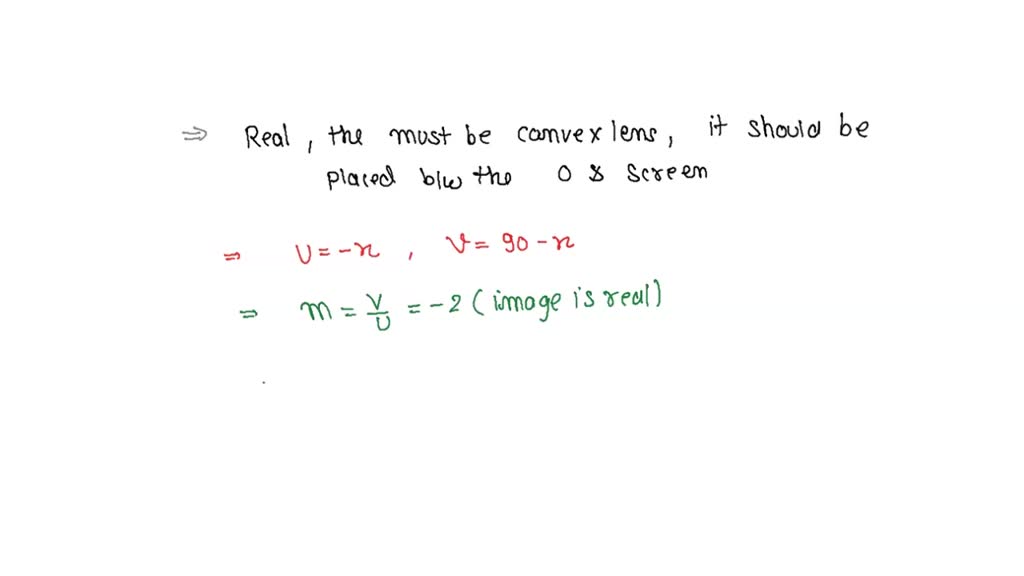 ⇒ Real, the must be convex lens, it should be
placed b/w the O & screen
⇒ U = -x, V = 90 - x
⇒ m = V/U = -2 (image is real)